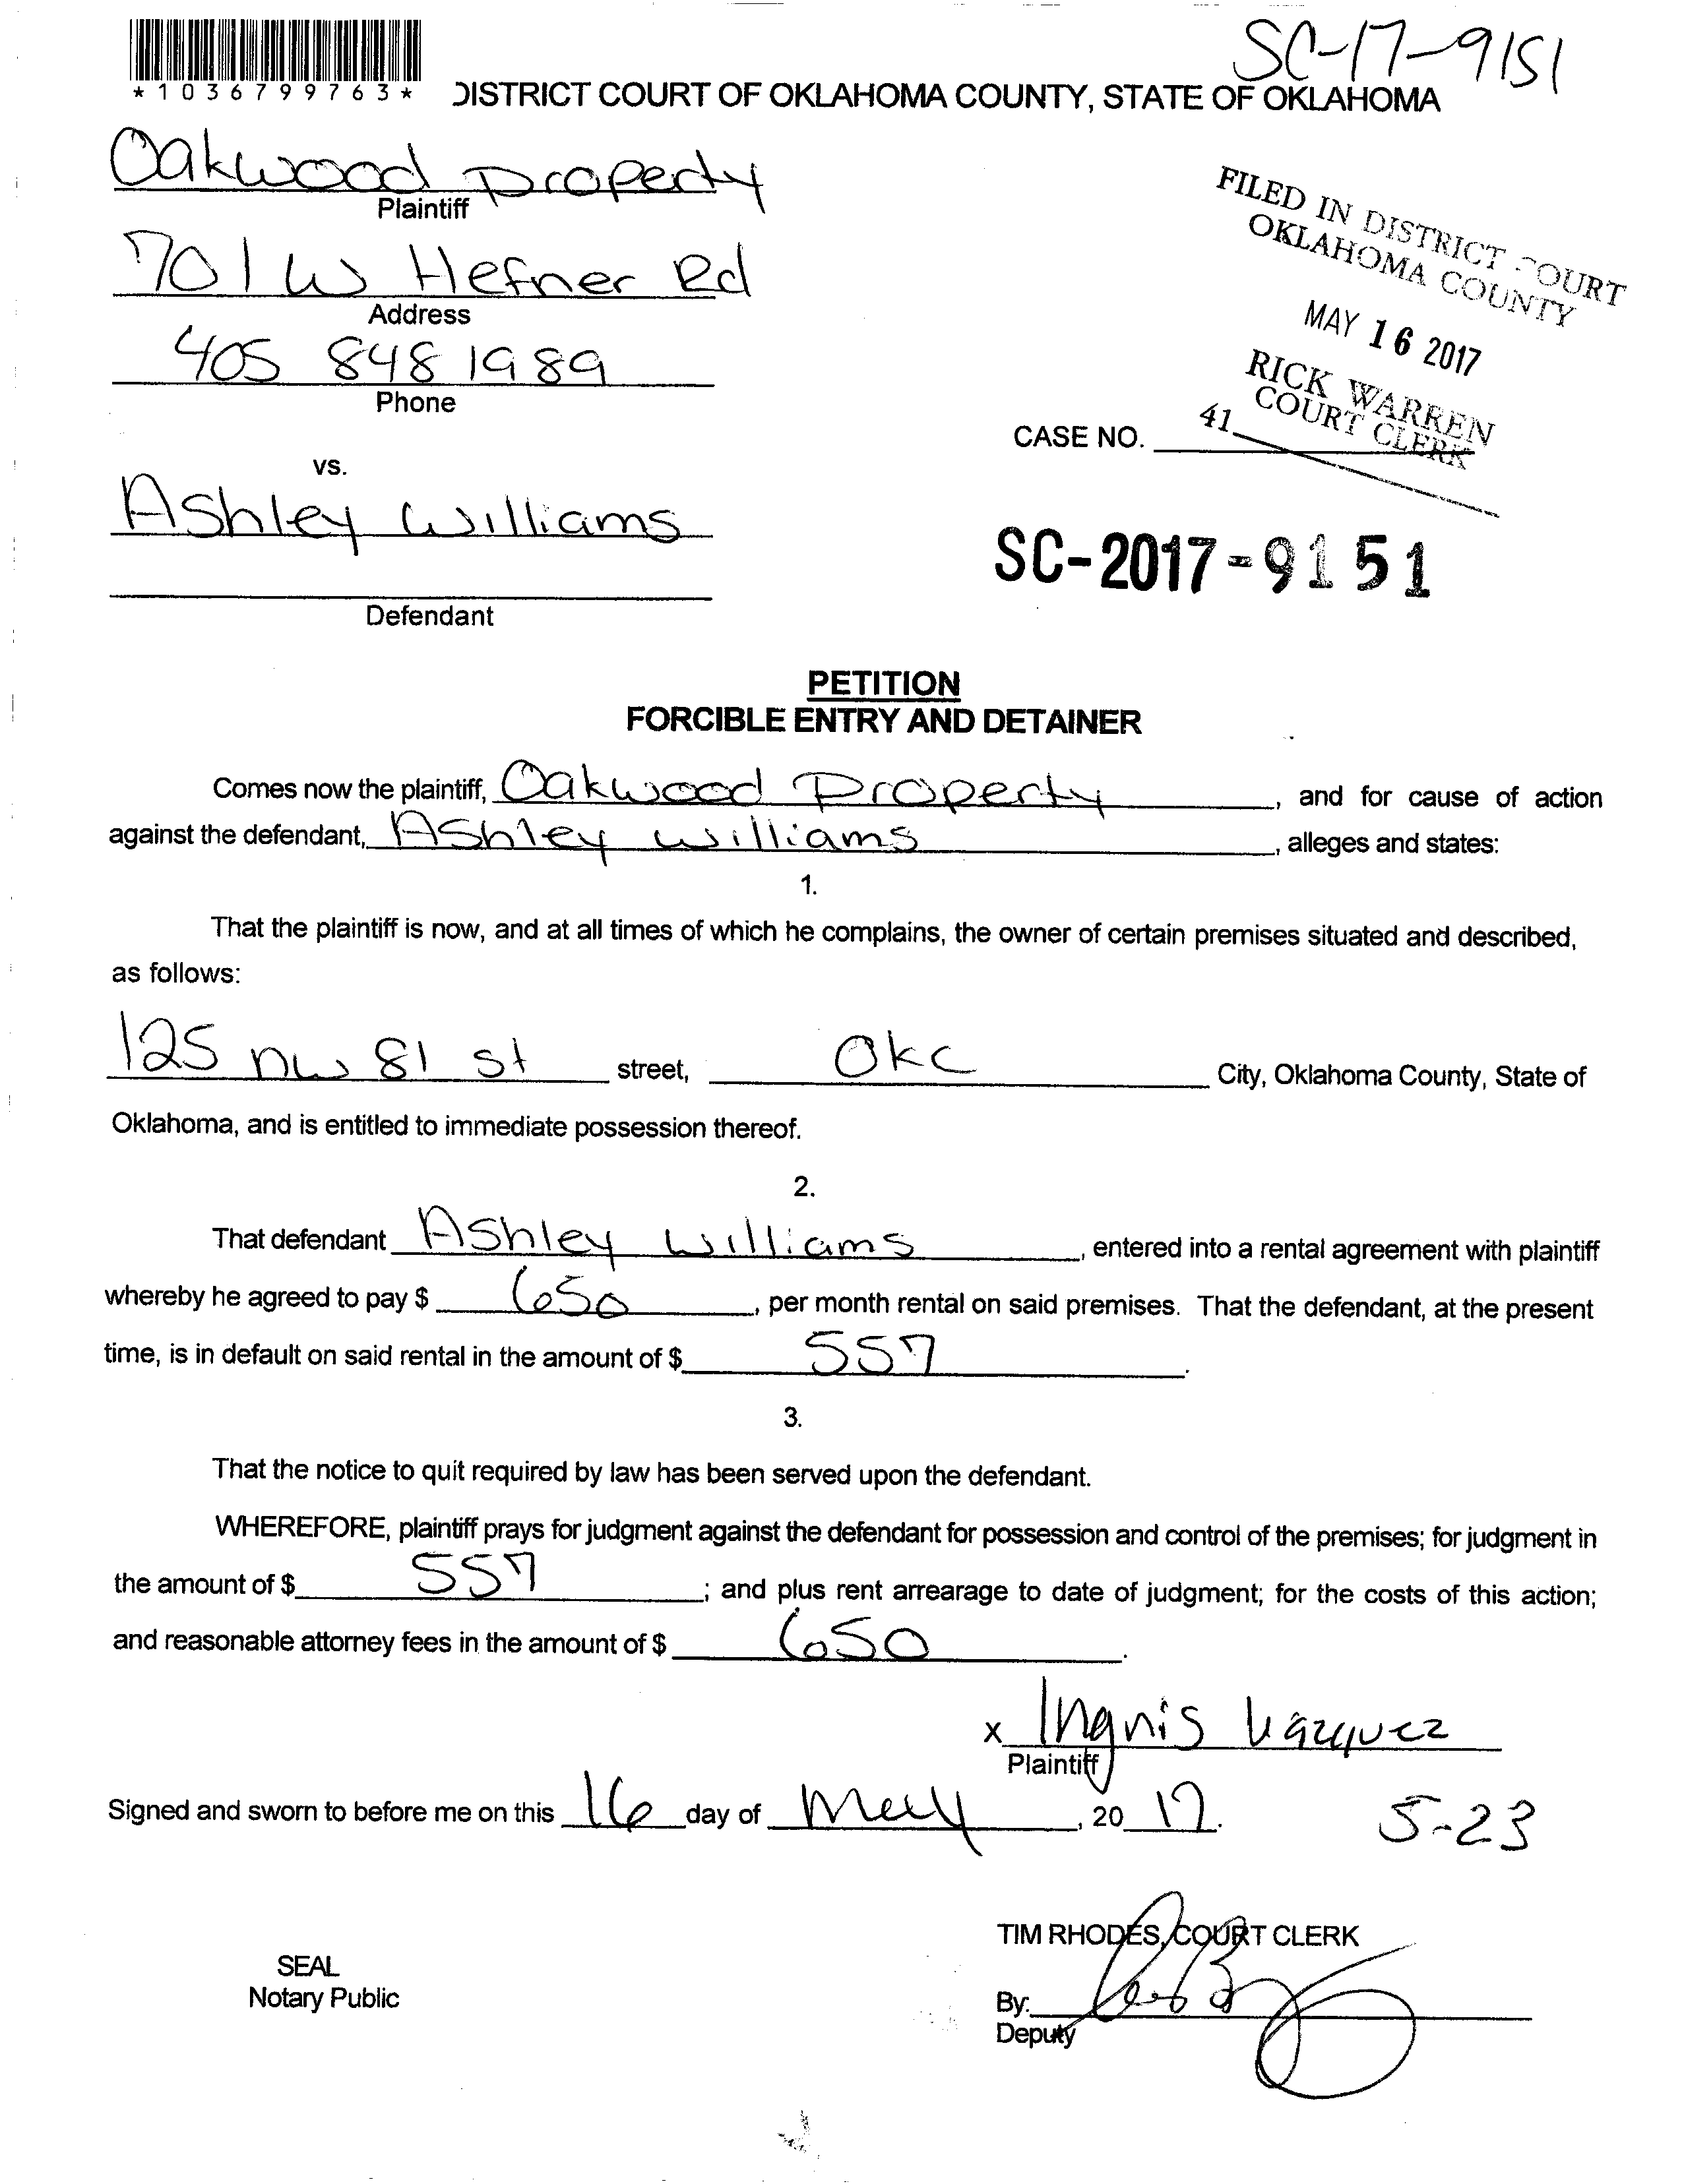 SC-17-9151
*1036799763*
DISTRICT COURT OF OKLAHOMA COUNTY, STATE OF OKLAHOMA
Oakwood Property
Plaintiff
701 W Hefner Rd
Address
405 848 1989
Phone
FILED IN DISTRICT COURT
OKLAHOMA COUNTY
MAY 16 2017
RICK WARREN
COURT CLERK
41
CASE NO.
vs.
Ashley Williams
SC-2017-9151
Defendant
PETITION
FORCIBLE ENTRY AND DETAINER
Comes now the plaintiff, Oakwood Property, and for cause of action
against the defendant, Ashley Williams, alleges and states:
1.
That the plaintiff is now, and at all times of which he complains, the owner of certain premises situated and described,
as follows:
125 nw 81 st street, OKC City, Oklahoma County, State of
Oklahoma, and is entitled to immediate possession thereof.
2.
That defendant Ashley Williams, entered into a rental agreement with plaintiff
whereby he agreed to pay $ 650, per month rental on said premises. That the defendant, at the present
time, is in default on said rental in the amount of $ 557.
3.
That the notice to quit required by law has been served upon the defendant.
WHEREFORE, plaintiff prays for judgment against the defendant for possession and control of the premises; for judgment in
the amount of $ 557; and plus rent arrearage to date of judgment; for the costs of this action;
and reasonable attorney fees in the amount of $ 650.
x Ingnis Vazquez
Plaintiff
Signed and sworn to before me on this 16 day of May, 20 17.
5-23
TIM RHODES, COURT CLERK
SEAL
Notary Public
By:
Deputy